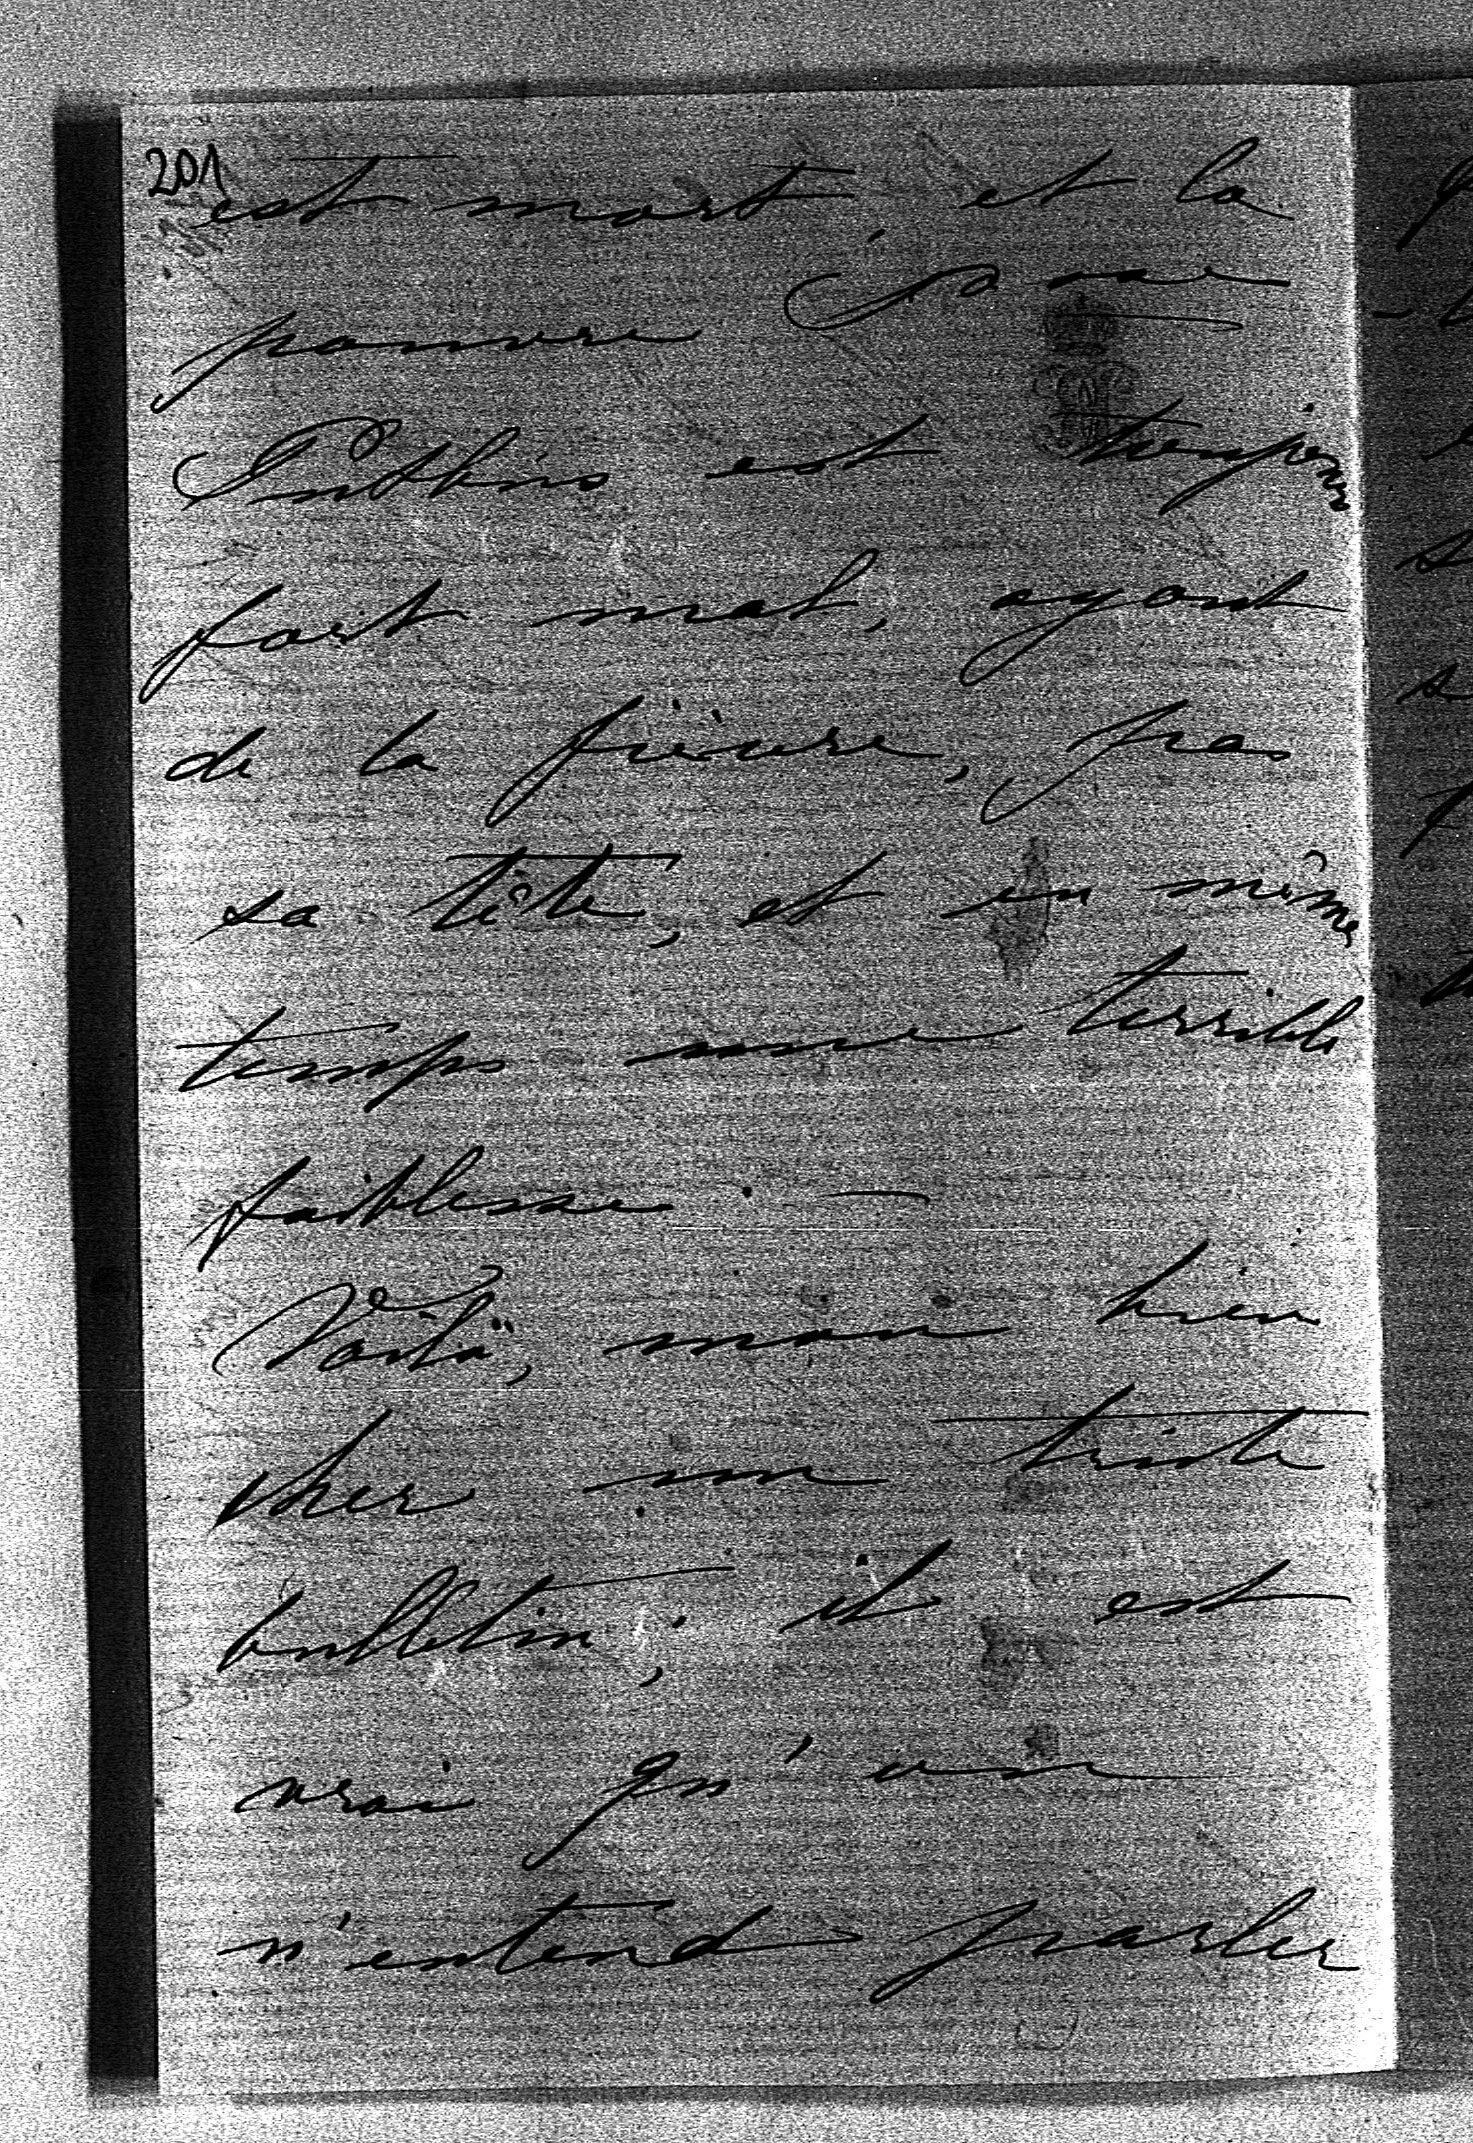 201
est mort, et la
pauvre Psse
Putbus est toujours
fort mal, ayant
de la fièvre, pas
sa tête, et en même
temps une terrible
faiblesse. —
Voilà, mon bien
cher un triste
bulletin; il est
vrai qu'on
n'entend parler